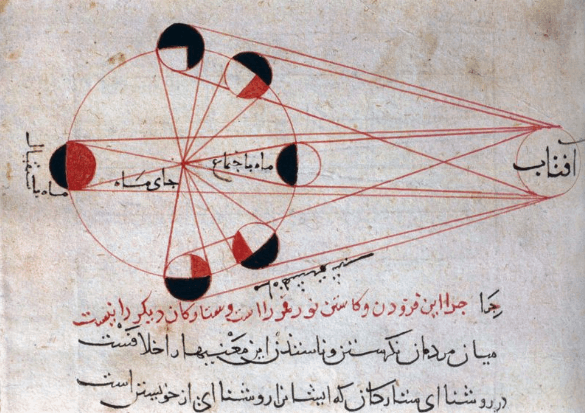 افتاب
ماه باجتماع
جای ماه
ماه باستقبال
چرا این فزودن و کاستن نور قمر را است و ستارکان دیکر را نیست
میان مردمان نکرستن این معنیها خلافست
در روشنا ای ستارکان که ایشانرا روشنا ای از خویشتن است